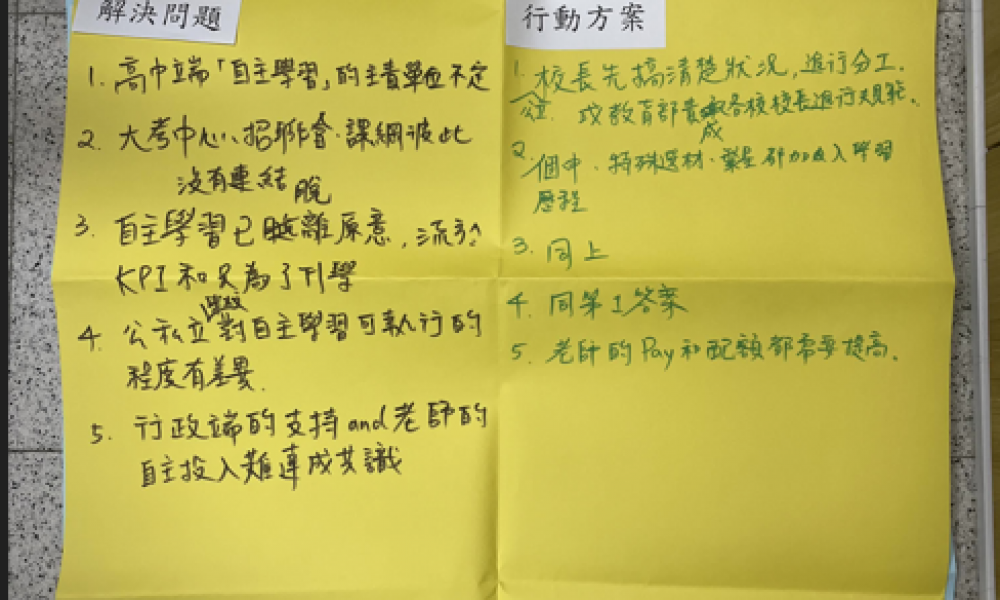 解決問題
1. 高中端「自主學習」的主責單位不定
2. 大考中心、招聯會、課綱彼此
沒有連結
3. 自主學習已脫離原意,流於
KPI和只為了升學
4. 公私立學校對自主學習可執行的
程度有差異.
5. 行政端的支持and老師的
自主投入難達成共識
行動方案
1. 校長先搞清楚狀況,進行分工.
或教育部責成各校校長進行規範.
2. 個申、特殊選材、繁星都加入學習
歷程
3. 同上
4. 同第1答案
5. 老師的Pay和配額都需要提高.